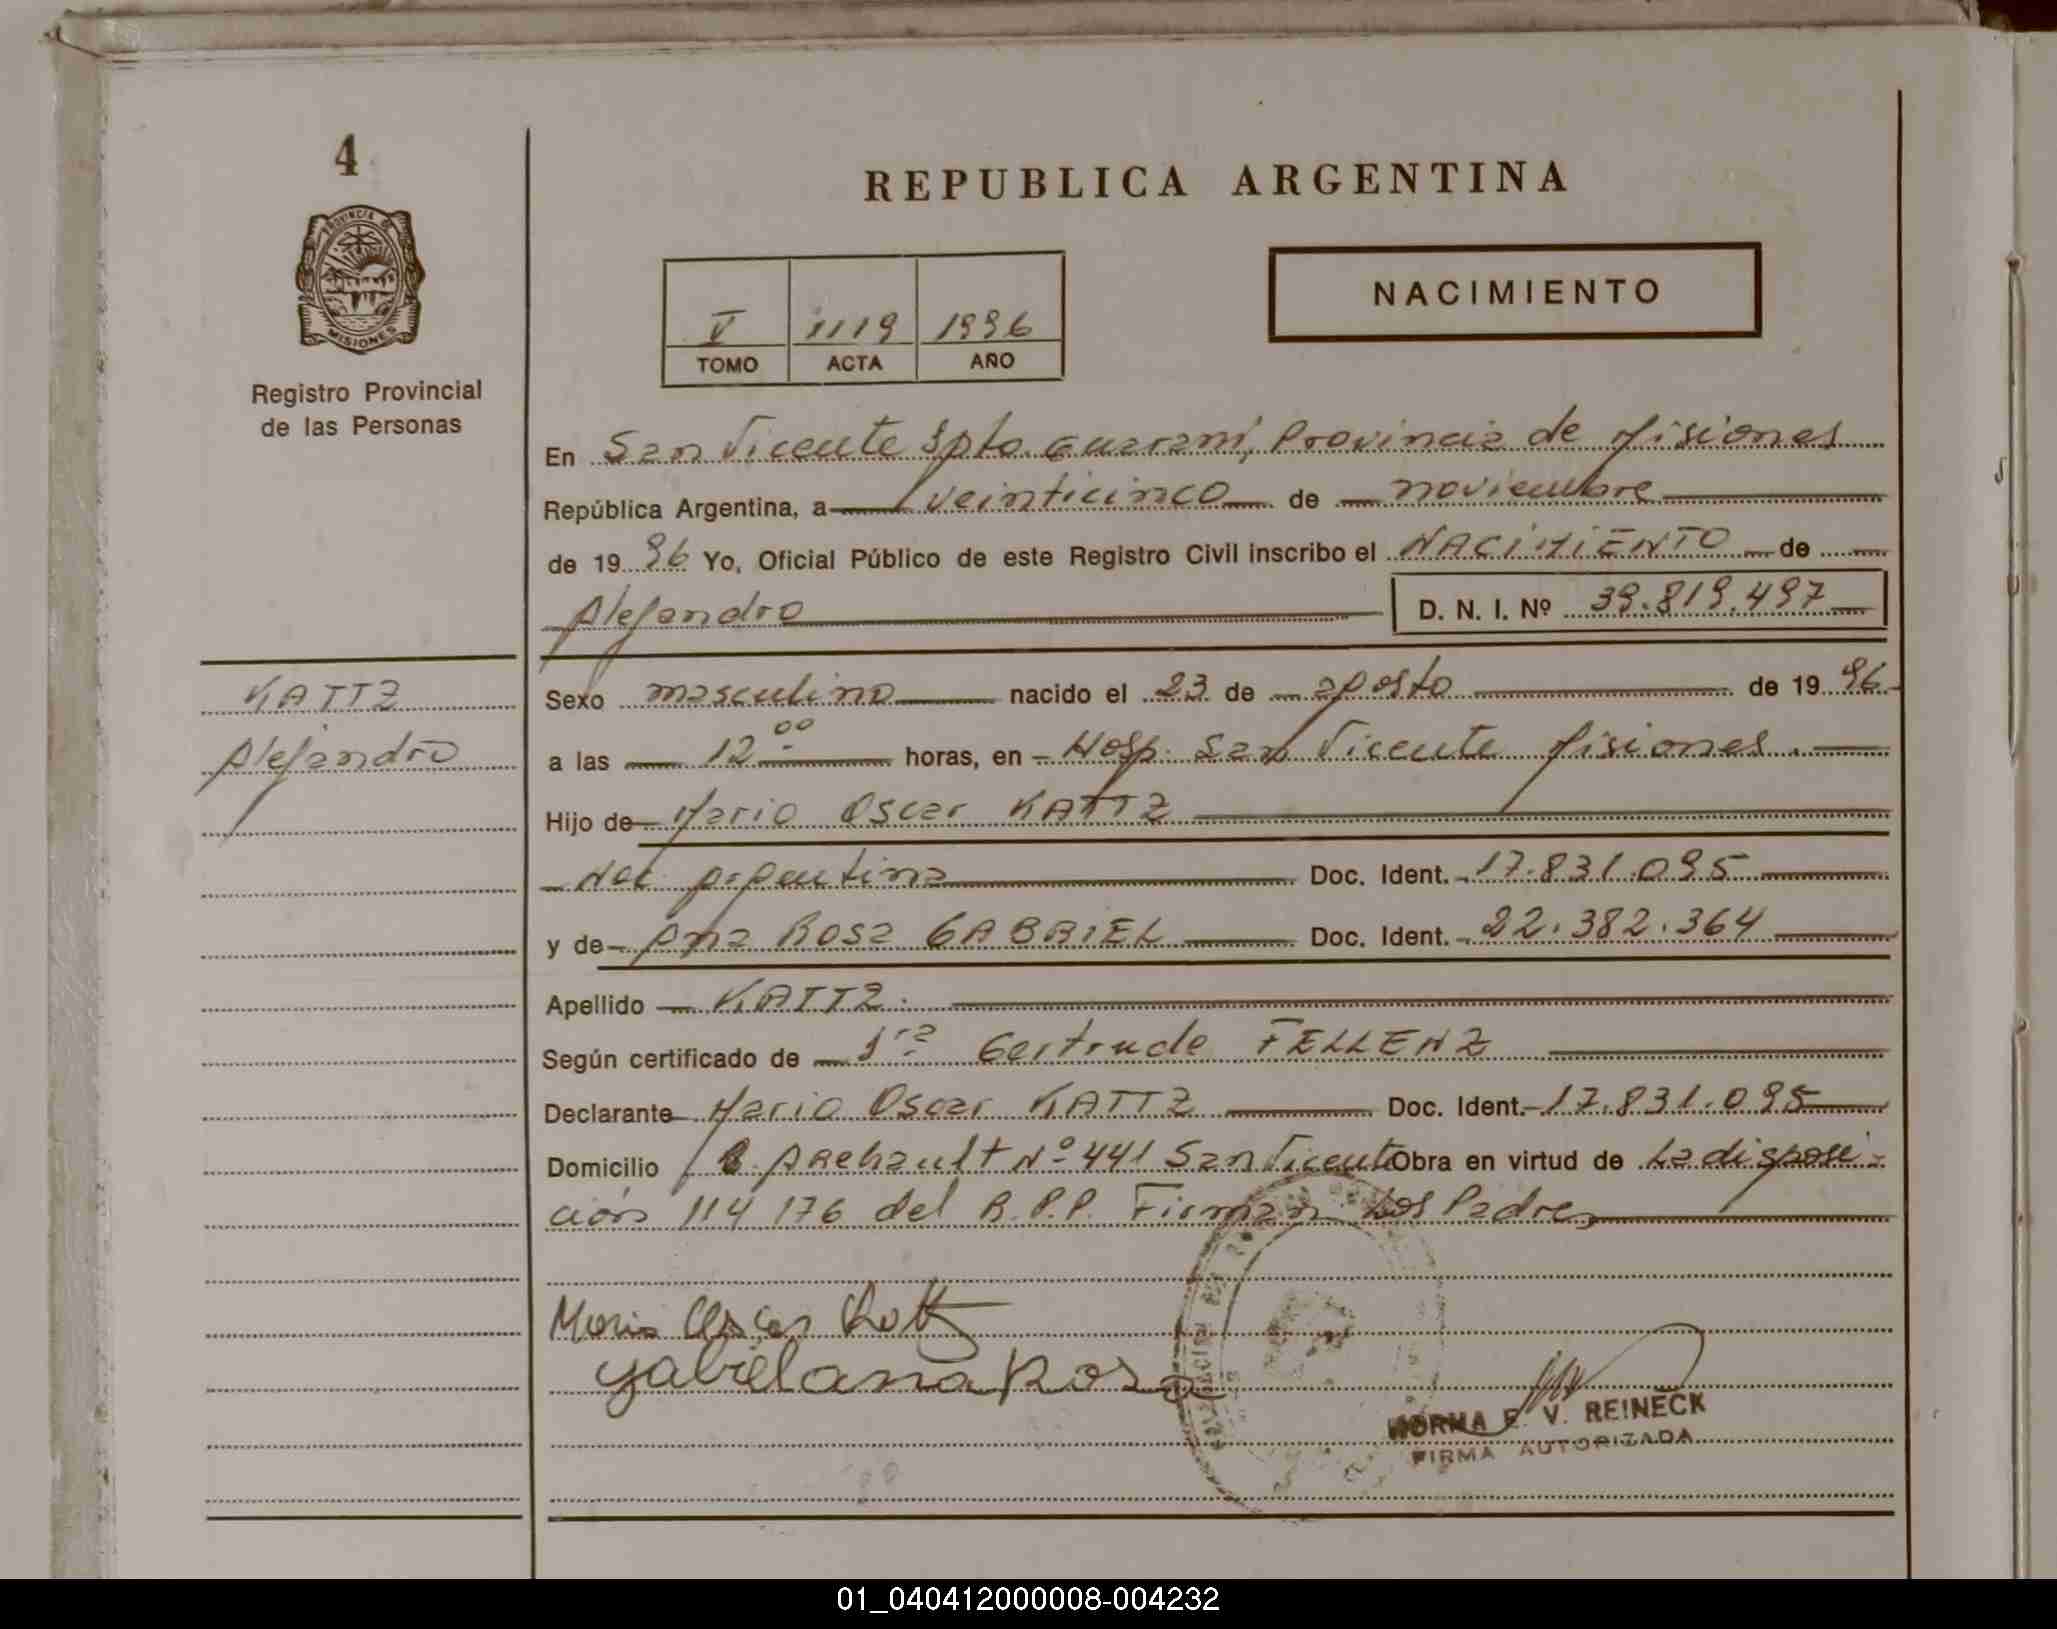 4
PROVINCIA DE
MISIONES
Registro Provincial
de las Personas
REPUBLICA ARGENTINA
V 1119 1996
TOMO ACTA AÑO
NACIMIENTO
En San Vicente Dpto. Guarani, Provincia de Misiones
República Argentina, a veinticinco de noviembre
de 1996 Yo, Oficial Público de este Registro Civil inscribo el NACIMIENTO de
Alejandro D. N. I. Nº 39.819.497
KATTZ
Alejandro
Sexo masculino nacido el 23 de agosto de 1996
a las 12 00 horas, en Hosp. San Vicente Misiones.
Hijo de Mario Oscar KATTZ
Nac Argentina Doc. Ident. 17.831.095
y de Ana Rosa GABRIEL Doc. Ident. 22.382.364
Apellido KATTZ.
Según certificado de Gertrude FELLENZ
Declarante Mario Oscar KATTZ Doc. Ident. 17.831.095
Domicilio Nº 441 San Vicente Obra en virtud de La disposi-
ción 114 176 del R.P.P. Firman Los Padres
Mario Oscar Katt
Gabriel ana Rosa
NORMA E. V. REINECK
FIRMA AUTORIZADA
01_040412000008-004232